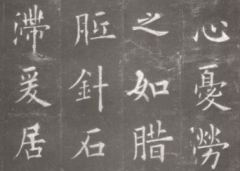 心憂勞
之如腊
胝針石
滯爰居